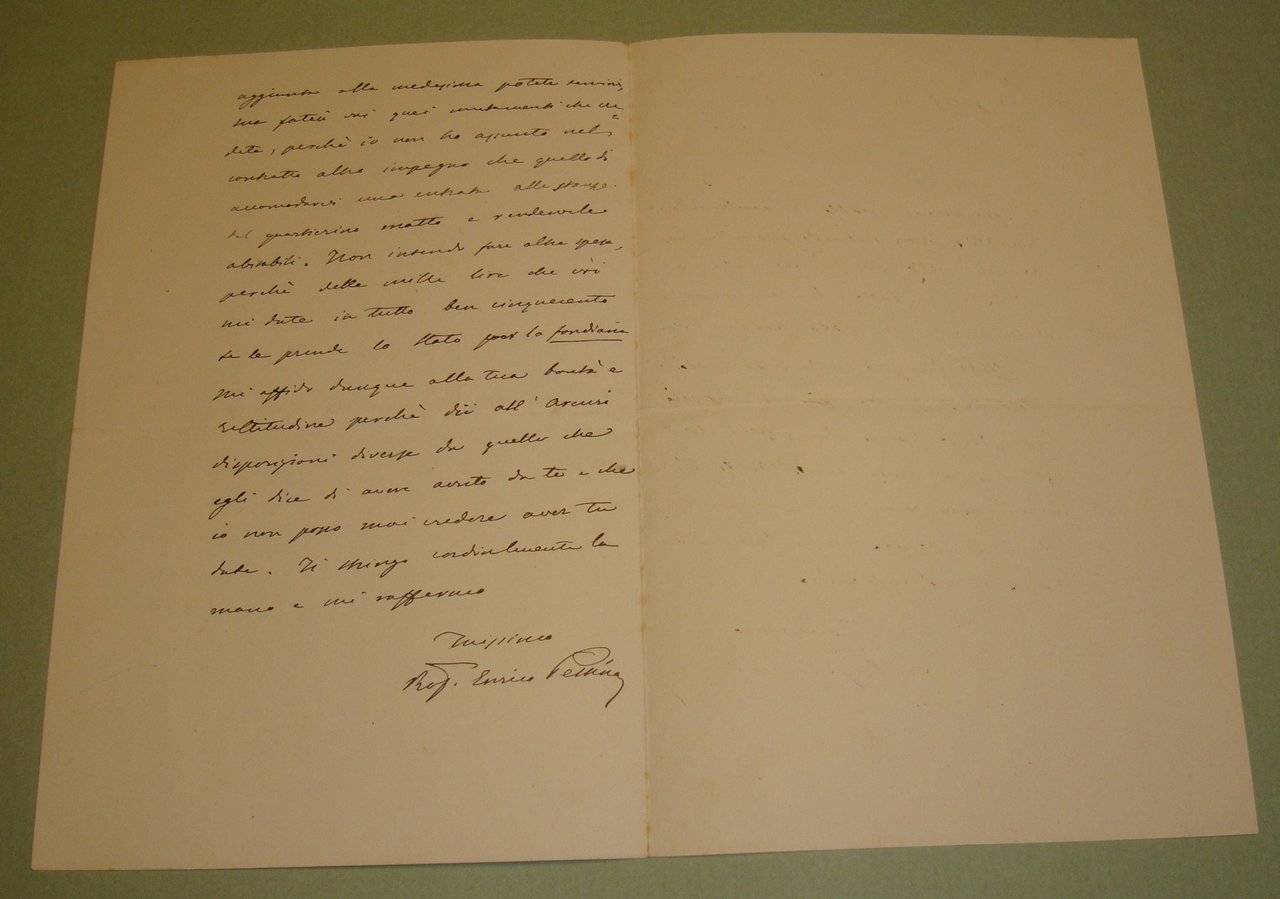 aggiunta alla medesima potete servirvi,
ma fatevi voi quei mutamenti che cre=
dete, perchè io non ho assunto nel
contratto altro impegno che quello di
accomodarvi una entrata alle stanze
del quartierino matto e rendervele
abitabili. Non intendo fare altre spese,
perchè delle mille lire che voi
mi date in tutto ben cinquecento
se le prende lo Stato per la fondiaria
Mi affido dunque alla tua bontà e
rettitudine perchè dii all'Arcuri
disposizioni diverse da quelle che
egli dice di avere avuto da te e che
io non posso mai credere aver tu
date. Ti stringo cordialmente la
mano e mi raffermo
Tuissimo
Prof. Enrico Pessina